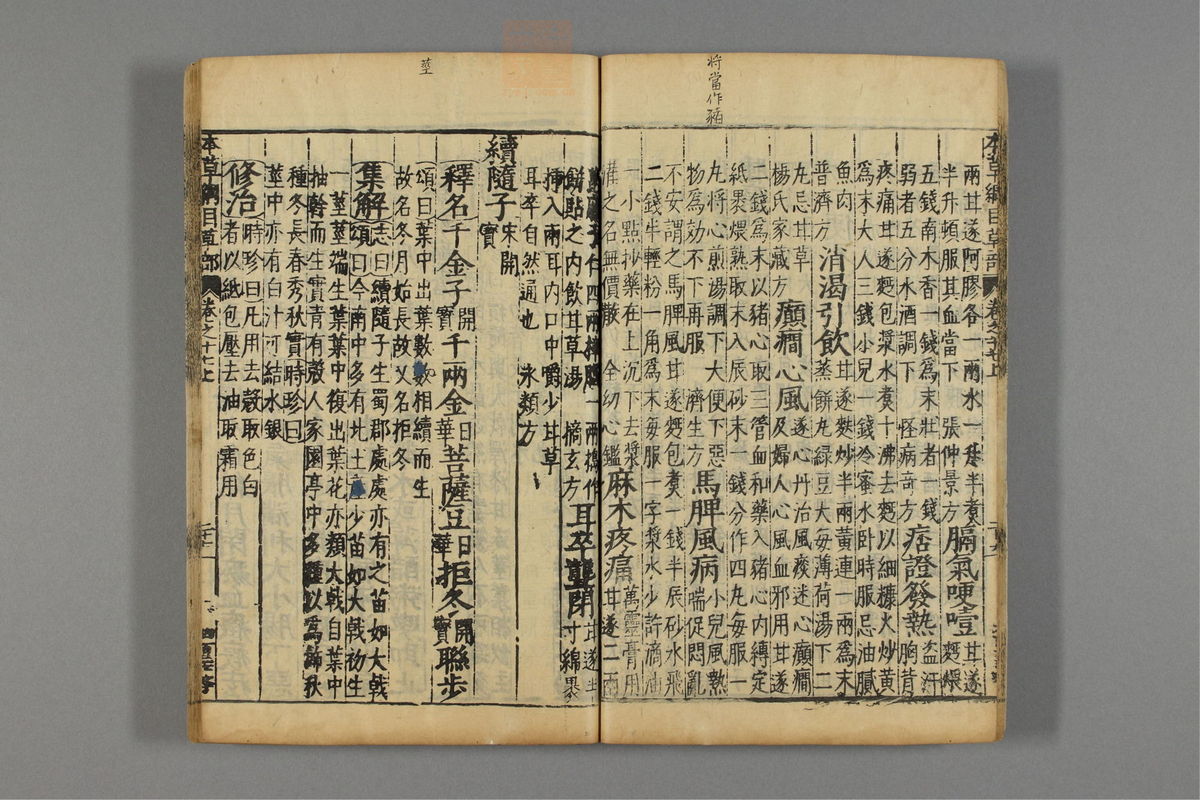 将當作猪
本草綱目草部 卷之十七上
兩甘遂阿膠各一兩水一鍾半煮 膈氣哽噎 甘遂
半升頓服其血當下 張仲景方 麪煨
五錢南木香一錢為末壯者一錢 痞證發熱 盗汗
弱者五分水酒調下 怪病奇方 胸背
疼痛甘遂麪包漿水煮十沸去麪以細糠火炒黄
為末大人三錢小兒一錢冷蜜水卧時服忌油膩
魚肉 消渴引飲 甘遂麩炒半兩黄連一兩為末
普濟方 蒸餅丸緑豆大每薄荷湯下二
丸忌甘草 癲癎心風 遂心丹治風痰迷心癲癎
楊氏家藏方 及婦人心風血邪用甘遂
二錢為末以猪心取三管血和藥入猪心内縛定
紙裹煨熟取末入辰砂末一錢分作四丸每服一
丸将心煎湯調下大便下惡 馬脾風病 小兒風熱
物為効不下再服 濟生方 喘促悶亂
不安謂之馬脾風甘遂麪包煮一錢半辰砂水飛
二錢半輕粉一角為末每服一字漿水少許滴油
一小點抄藥在上沉下去漿 麻木疼痛 萬靈膏用
灌之名無價散 全幼心鑑 甘遂二兩
莖
麻子仁四兩樟腦一兩擣作 耳卒聾閉 甘遂半
餅點之内飲甘草湯 摘玄方 寸綿裹
揷入兩耳内口中嚼少甘草
耳卒自然通也 永類方
續隨子 宋開寶
釋名 千金子 開寶 千兩金 日華 菩薩豆 日華 拒冬 開寶 聯步
頌曰葉中出葉數數相續而生
故名冬月始長故又名拒冬
集解 志曰續隨子生蜀郡處處亦有之苗如大戟
頌曰今南中多有北土産少苗如大戟初生
一莖莖端生葉葉中複出葉花亦類大戟自葉中
抽幹而生實青有殼人家園亭中多種以為飾秋
種冬長春秀秋實時珍曰
莖中亦有白汁可結水銀
修治 時珍曰凡用去殼取色白
者以紙包壓去油取霜用
本草綱目草部 卷之十七上